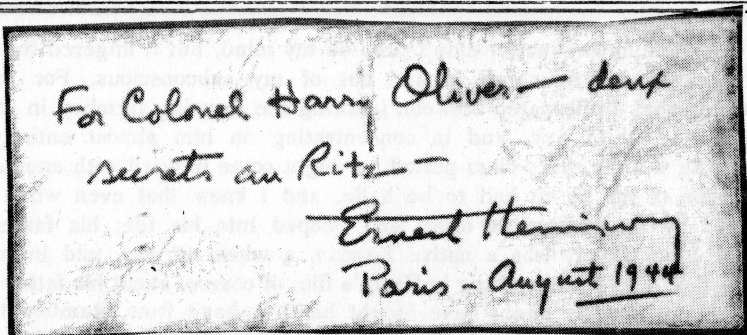 For Colonel Harry Oliver — deux
secrets au Ritz —
Ernest Hemingway
Paris - August 1944